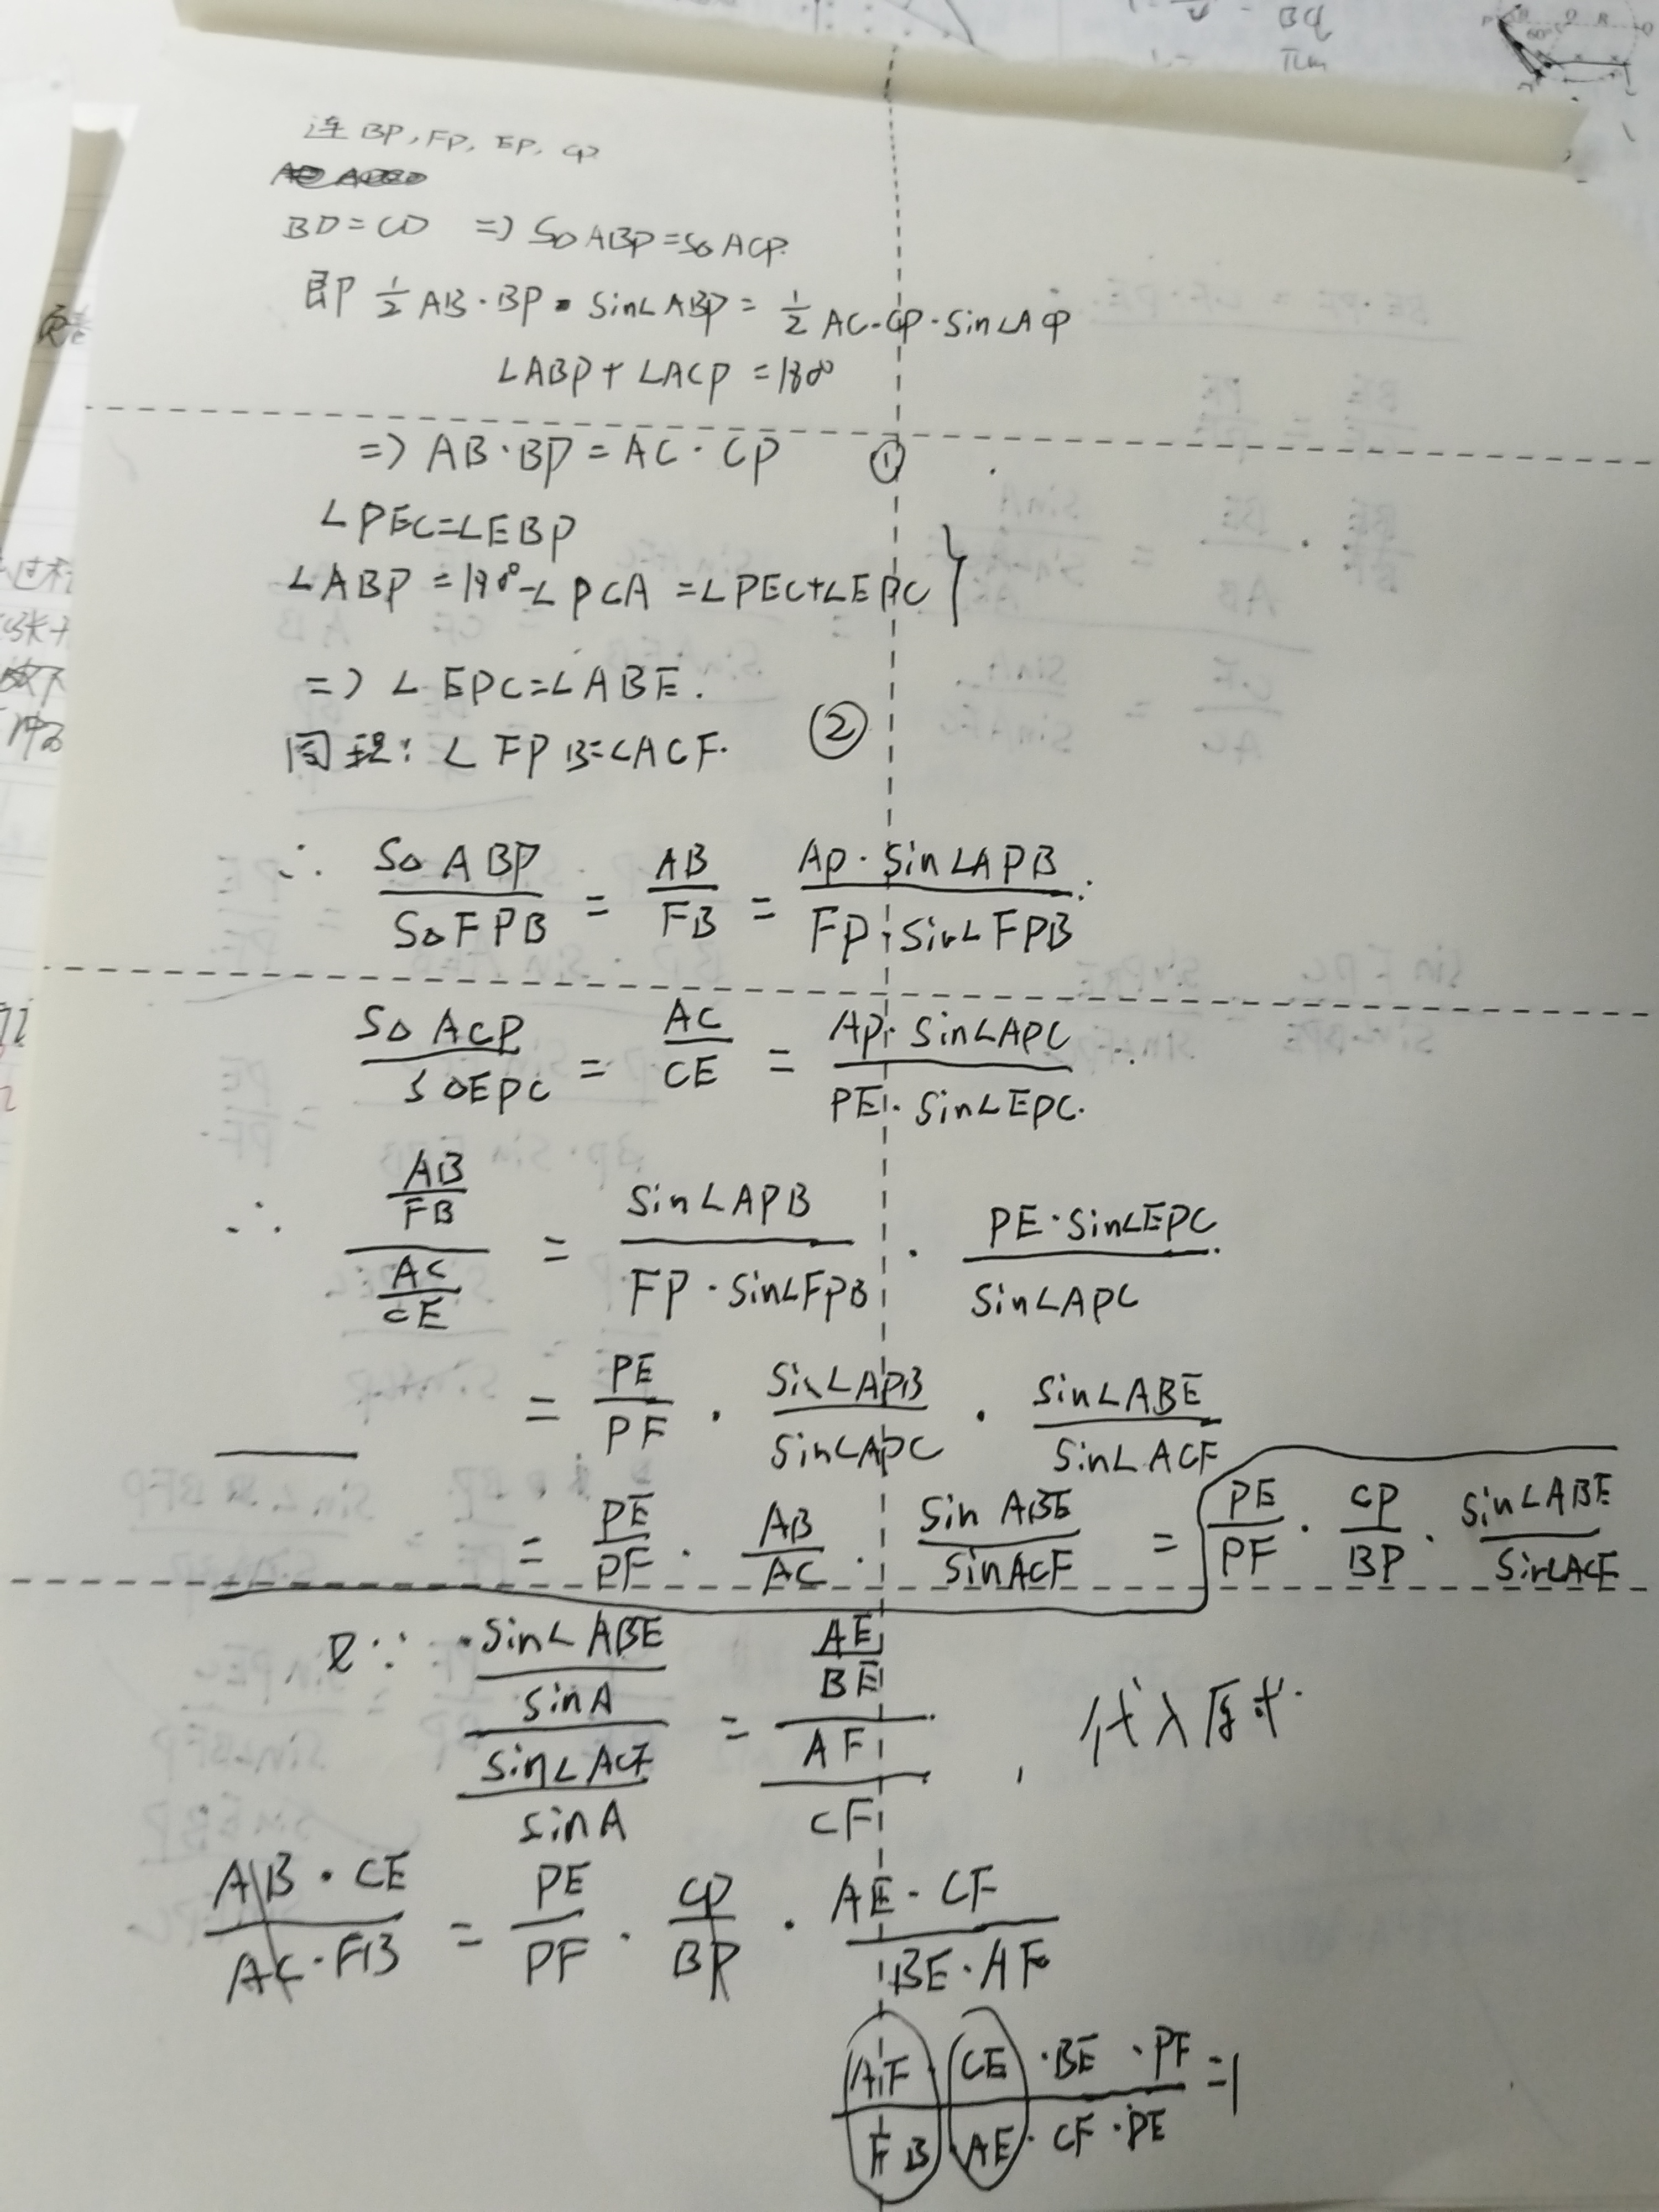 连 BP, FP, EP, CP
BD=CD => S△ABP=S△ACP.
即 1/2 AB·BP·sin∠ABP = 1/2 AC·CP·sin∠ACP
∠ABP+∠ACP=180°
=> AB·BP=AC·CP ①
∠PEC=∠EBP
∠ABP=180°-∠PCA=∠PEC+∠EPC }
=> ∠EPC=∠ABE.
同理: ∠FPB=∠ACF. ②
∴ S△ABP/S△FPB = AB/FB = AP·sin∠APB/FP·sin∠FPB
S△ACP/S△EPC = AC/CE = AP·sin∠APC/PE·sin∠EPC.
∴ (AB/FB)/(AC/CE) = sin∠APB/FP·sin∠FPB · PE·sin∠EPC/sin∠APC
= PE/PF · sin∠APB/sin∠APC · sin∠ABE/sin∠ACF
= PE/PF · AB/AC · sin ABE/sin ACF = PE/PF · CP/BP · sin∠ABE/sin∠ACF
又∵ (sin∠ABE/sin A)/(sin∠ACF/sin A) = (AE/BE)/(AF/CF), 代入原式.
AB·CE/AC·FB = PE/PF · CP/BP · AE·CF/BE·AF
AF·CE·BE·PF/FB·AE·CF·PE =1